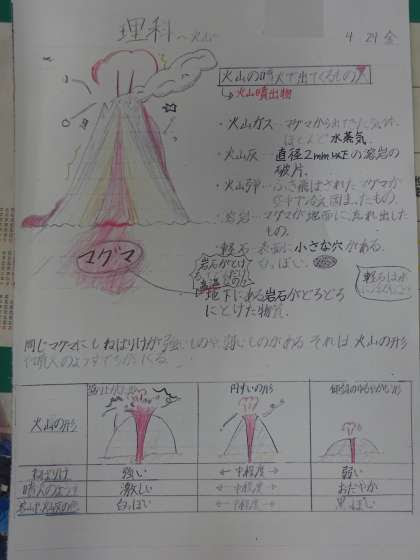 理科 ～火山～
4.24 金
火山の噴火で出てくるもの
→火山噴出物
・火山ガス…マグマから出てきた気体。
ほとんど水蒸気。
・火山灰…直径2mm以下の溶岩の
破片。
・火山弾…ふき飛ばされたマグマが
固まったもの。
・溶岩…マグマが地面に流れ出した
もの。
・軽石…表面に小さな穴がある。
白っぽい。
軽石は水に
マグマ
岩石がとけ
高温
地下にある岩石がどろどろ
にとけた物質。
同じマグマにもねばりけが強いものや、弱いものがある。それは火山の形
や噴火のようすでわかる。
火山の形
円すいの形
傾斜のゆるやかな形
ねばりけ 強い ← 中程度 → 弱い
噴火のようす 激しい ← 中程度 → おだやか
火山灰の色 白っぽい ← 中程度 → 黒っぽい